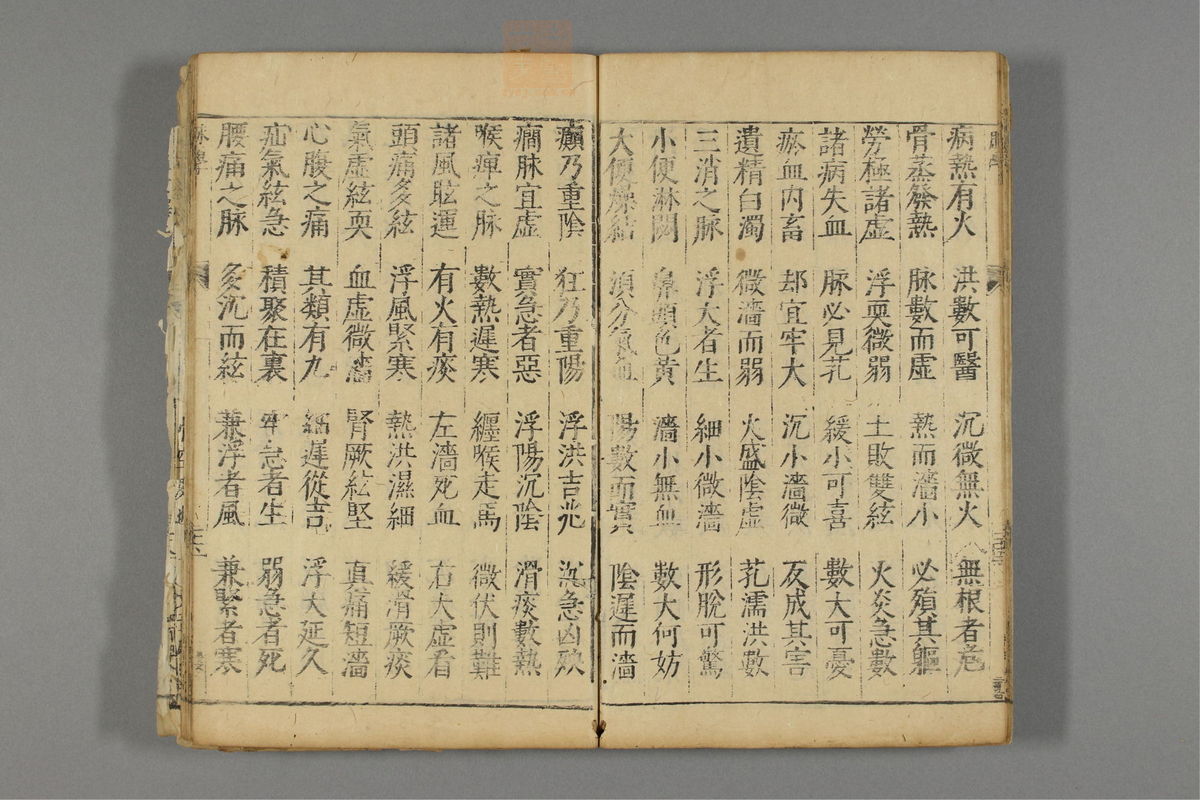 病熱有火 洪數可醫 沉微無火 無根者危
骨蒸發熱 脉數而虛 熱而濇小 必殞其軀
勞極諸虛 浮耎微弱 土敗雙絃 火炎急數
諸病失血 脈必見芤 緩小可喜 數大可憂
瘀血內畜 却宜牢大 沉小濇微 反成其害
遺精白濁 微濇而弱 火盛陰虛 芤濡洪數
三消之脈 浮大者生 細小微濇 形脫可驚
小便淋閟 鼻頭色黃 濇小無血 數大何妨
大便燥結 須分氣血 陽數而實 陰遲而濇
癲乃重陰 狂乃重陽 浮洪吉兆 沉急凶殃
癎脉宜虛 實急者惡 浮陽沉陰 滑痰數熱
喉痺之脉 數熱遲寒 纏喉走馬 微伏則難
諸風眩運 有火有痰 左濇死血 右大虛看
頭痛多絃 浮風緊寒 熱洪濕細 緩滑厥痰
氣虛絃耎 血虛微濇 腎厥絃堅 真痛短濇
心腹之痛 其類有九 細遲從吉 浮大延久
疝氣絃急 積聚在裏 牢急者生 弱急者死
腰痛之脉 多沉而絃 兼浮者風 兼緊者寒